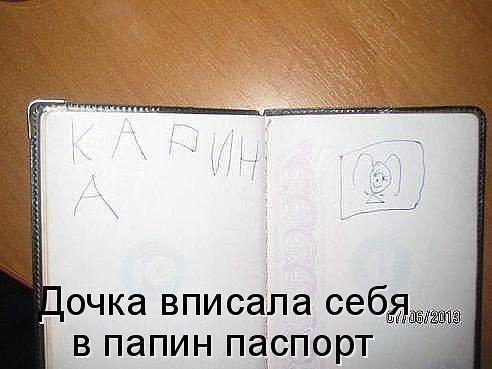 КАРИН
А
07/06/2013
Дочка вписала себя
в папин паспорт